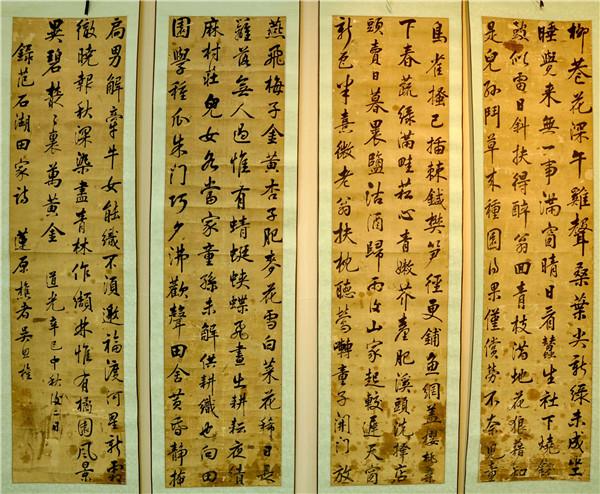 柳巷花深午雞聲桑葉尖新綠未成坐
睡覺來無一事滿窗晴日看蠶生社下燒錢
鼓似雷日斜扶得醉翁回青枝滿地花狼藉知
是兒孫鬥草來種園得果僅償勞不奈兒童
鳥雀搔已插棘鍼樊筍徑更鋪魚網蓋櫻桃桑
下春蔬綠滿畦菘心青嫩芥薹肥溪頭洗擇店
頭賣日暮裹鹽沽酒歸雨後山家起較遲天窗
新色半熹微老翁扶枕聽鶯囀童子開門放
燕飛梅子金黃杏子肥麥花雪白菜花稀日長
籬落無人過惟有蜻蜓蛺蝶飛晝出耕耘夜績
麻村莊兒女各當家童孫未解供耕織也向田
園學種瓜朱門巧夕沸歡聲田舍黃昏靜掩
扃男解牽牛女能織不須邀福渡河星新霜
徹曉報秋深染盡青林作纈林惟有橘園風景
異碧叢々裏萬黃金 道光辛巳中秋後二日
錄范石湖田家詩 蓮原樵者吳